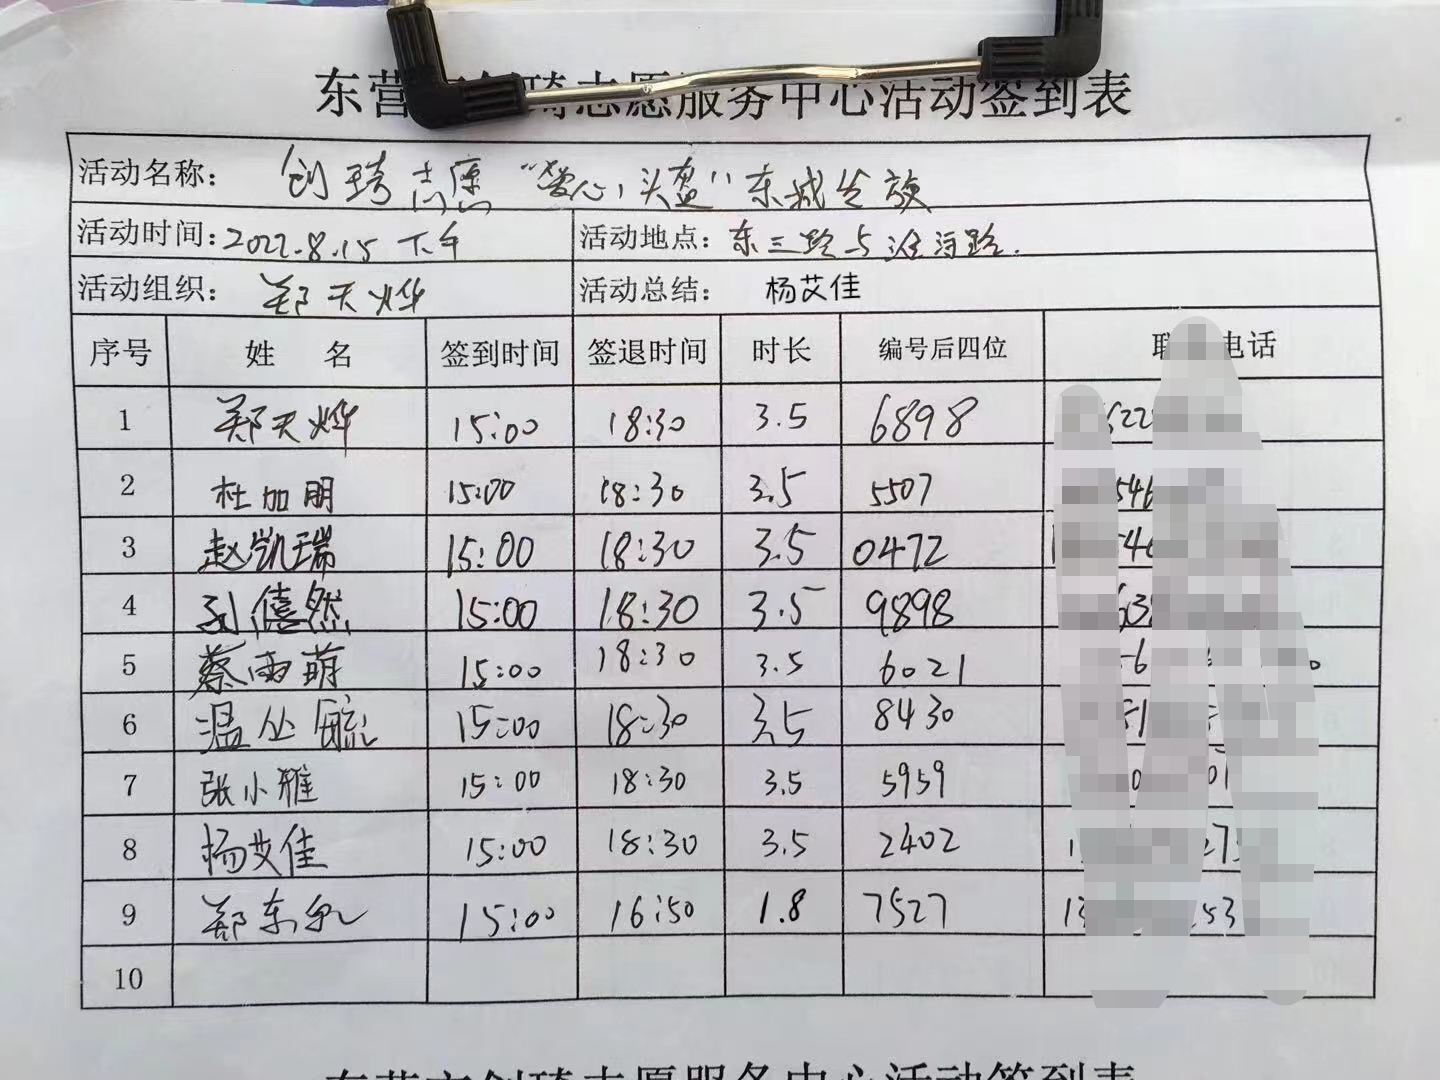 东营市创琦志愿服务中心活动签到表
活动名称： 创琦志愿“爱心头盔”东城发放
活动时间：2022.8.15 下午 活动地点：东三路与淮河路.
活动组织： 郑天烨 活动总结： 杨艾佳
序号 姓 名 签到时间 签退时间 时长 编号后四位 联 电话
1 郑天烨 15:00 18:30 3.5 6898
2 杜加朋 15:00 18:30 3.5 5507
3 赵凯瑞 15:00 18:30 3.5 0472
4 刘僖然 15:00 18:30 3.5 9898
5 蔡雨萌 15:00 18:30 3.5 6021
6 温丛毓 15:00 18:30 3.5 8430
7 张小雅 15:00 18:30 3.5 5959
8 杨艾佳 15:00 18:30 3.5 2402
9 郑东 15:00 16:50 1.8 7527
10
东营市创琦志愿服务中心活动签到表